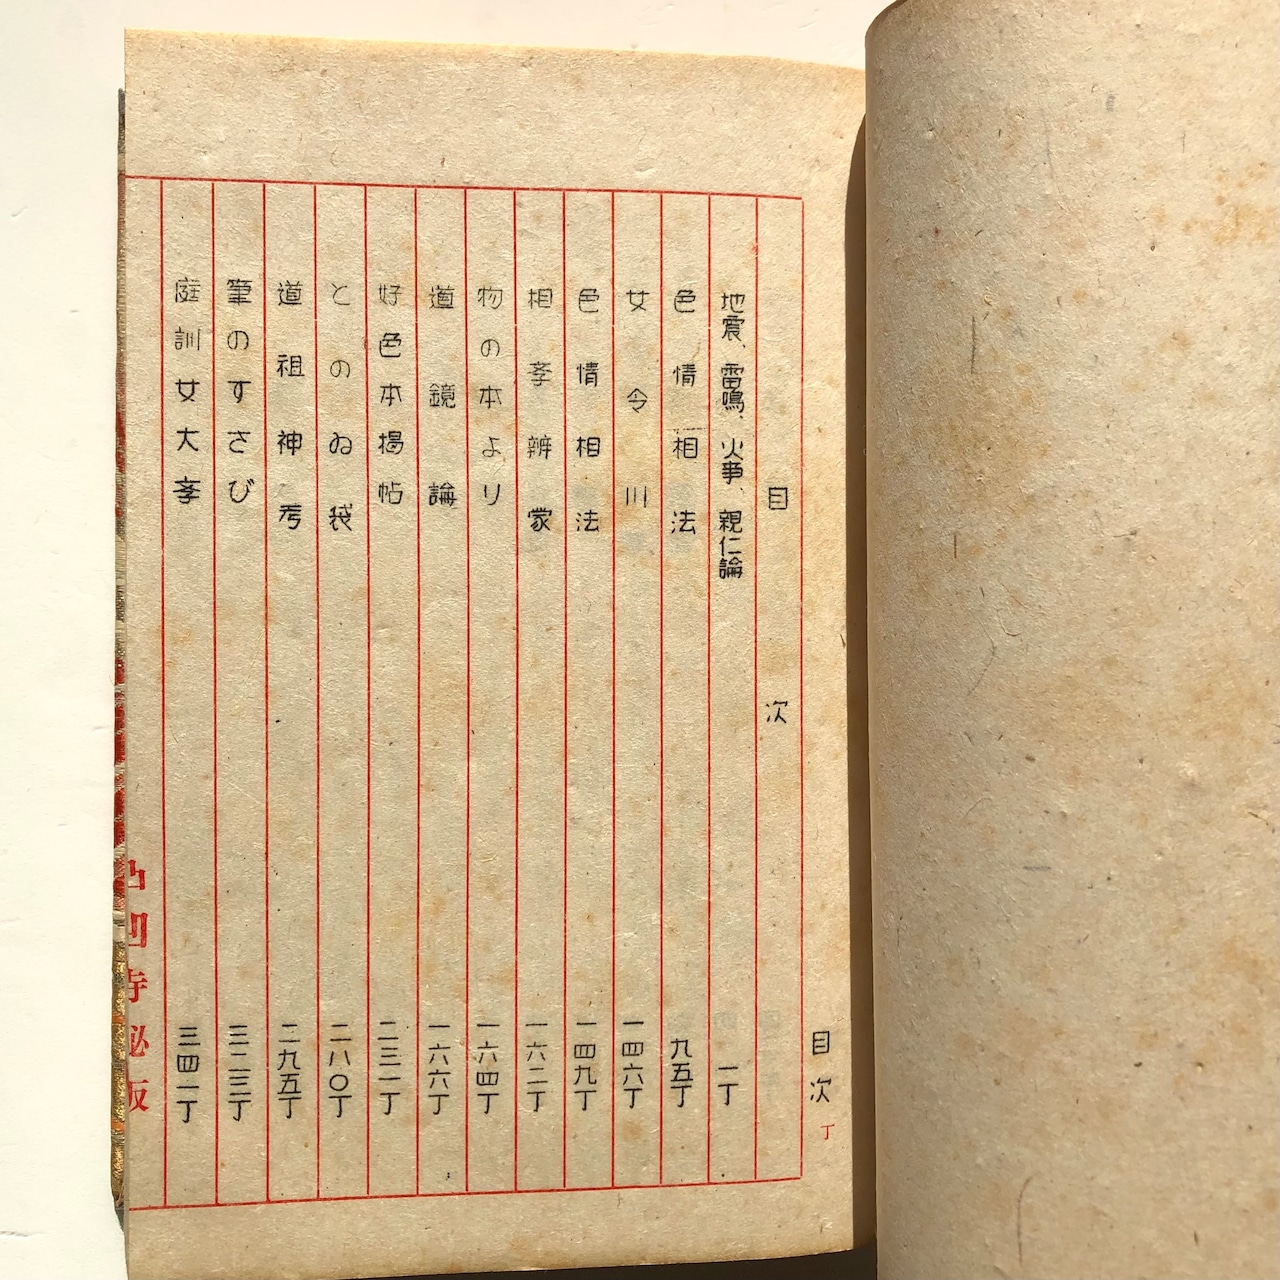 目次 丁
目次
地震、雷鳴、火事、親仁論 一丁
色情相法 九五丁
女令川 一四六丁
色情相法 一四九丁
相孝辨蒙 一六二丁
物の本より 一六四丁
道鏡論 一六六丁
好色本掲帖 二三一丁
とのゐ袋 二八〇丁
道祖神考 二九五丁
筆のすさび 三二三丁
庭訓女大孝 三四一丁
凸凹寺秘版